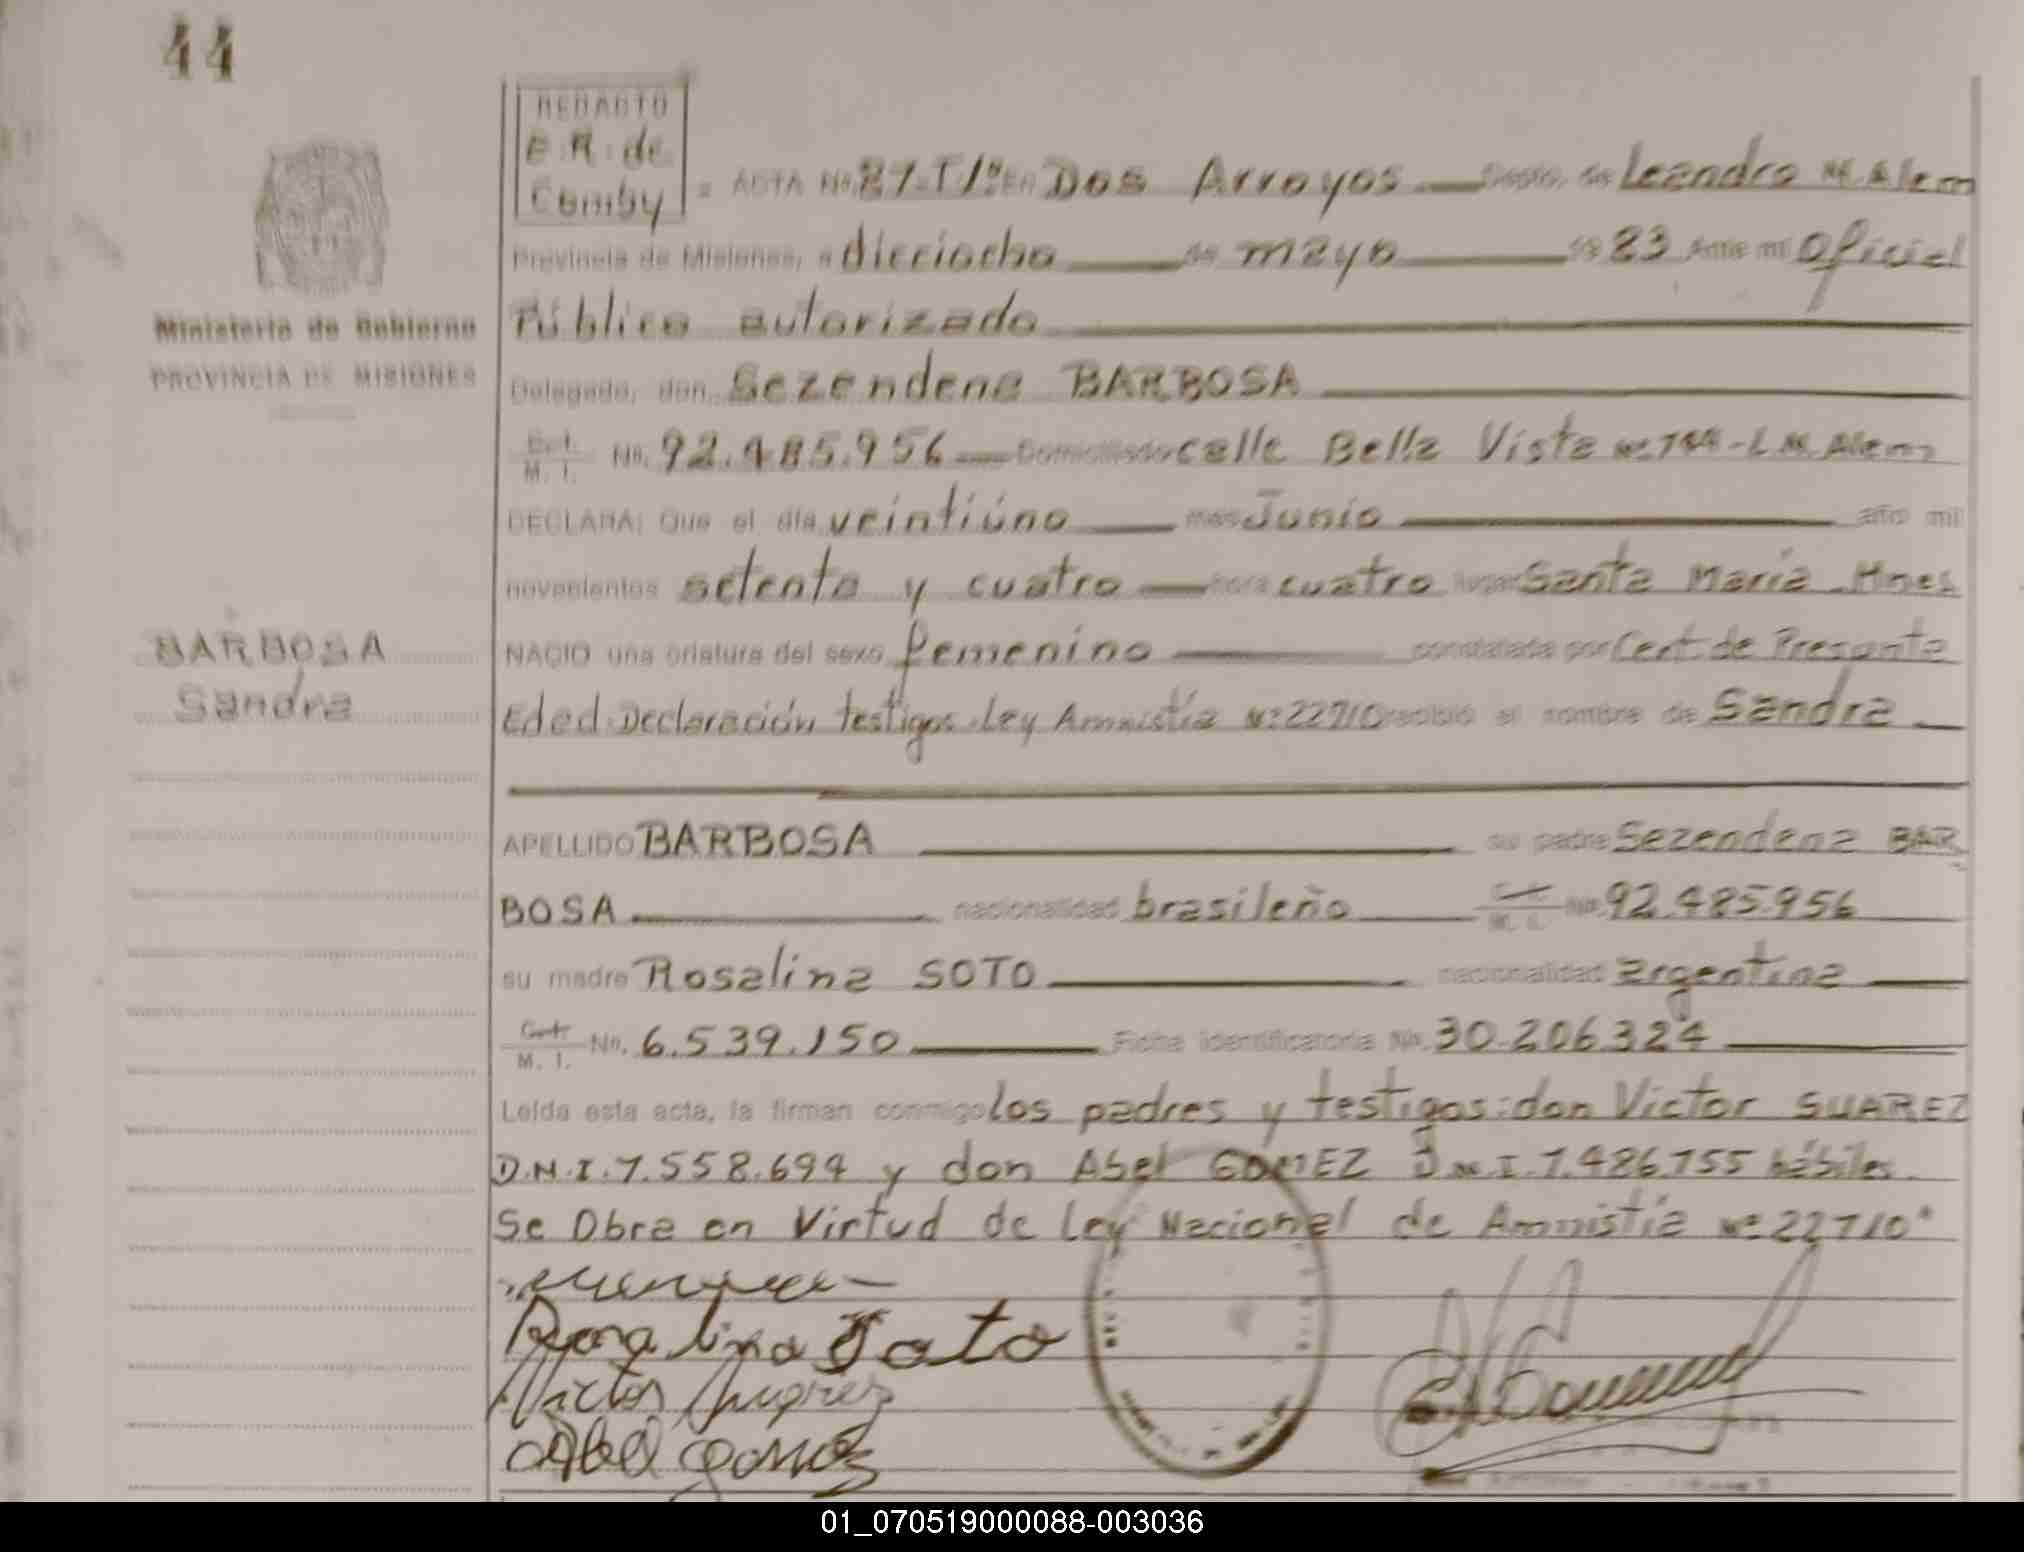 44
REDACTO
E.R. de
Comby
ACTA Nº 87-T/1º En Dos Arroyos Depto. de Leandro N. Alem
Provincia de Misiones, a dieciocho de mayo de 83 Ante mi Oficial
Público autorizado
Ministerio de Gobierno
PROVINCIA DE MISIONES
Delegado, don Sezendena BARBOSA
M. I. Nº. 92.485.956 Domiciliado calle Bella Vista - L.N. Alem
DECLARA: Que el día veintiúno mes Junio año mil
novecientos setenta y cuatro hora cuatro lugar Santa María Mnes
BARBOSA
Sandra
NACIO una criatura del sexo femenino constatada por Cert. de Presunta
Edad. Declaración testigos. Ley Amnistía Nº 22710 recibió el nombre de Sandra
APELLIDO BARBOSA su padre Sezendena BAR
BOSA nacionalidad brasileño M. I. Nº. 92.485.956
su madre Rosalina SOTO nacionalidad argentina
M. I. Nº. 6.539.150 Ficha identificatoria Nº. 30.206.324
Leída esta acta, la firman conmigo los padres y testigos: don Victor SUAREZ
D.N.I. 7.558.694 y don Abel GOMEZ D.N.I. 7.486.755 hábiles.
Se Obra en Virtud de Ley Nacional de Amnistía Nº 22710
Rosalina Soto
Victor Suarez
Abel Gomez
01_070519000088-003036